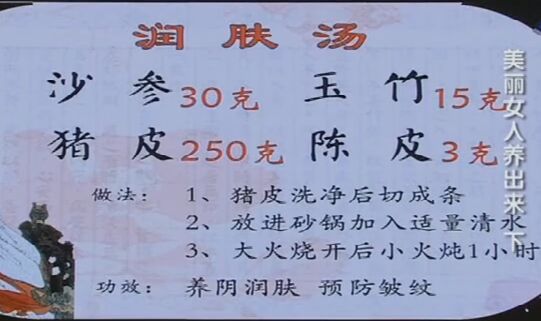 润肤汤
沙参30克 玉竹15克
猪皮250克 陈皮3克
做法： 1、猪皮洗净后切成条
2、放进砂锅加入适量清水
3、大火烧开后小火炖1小时
功效： 养阴润肤 预防皱纹
美丽女人养出来下